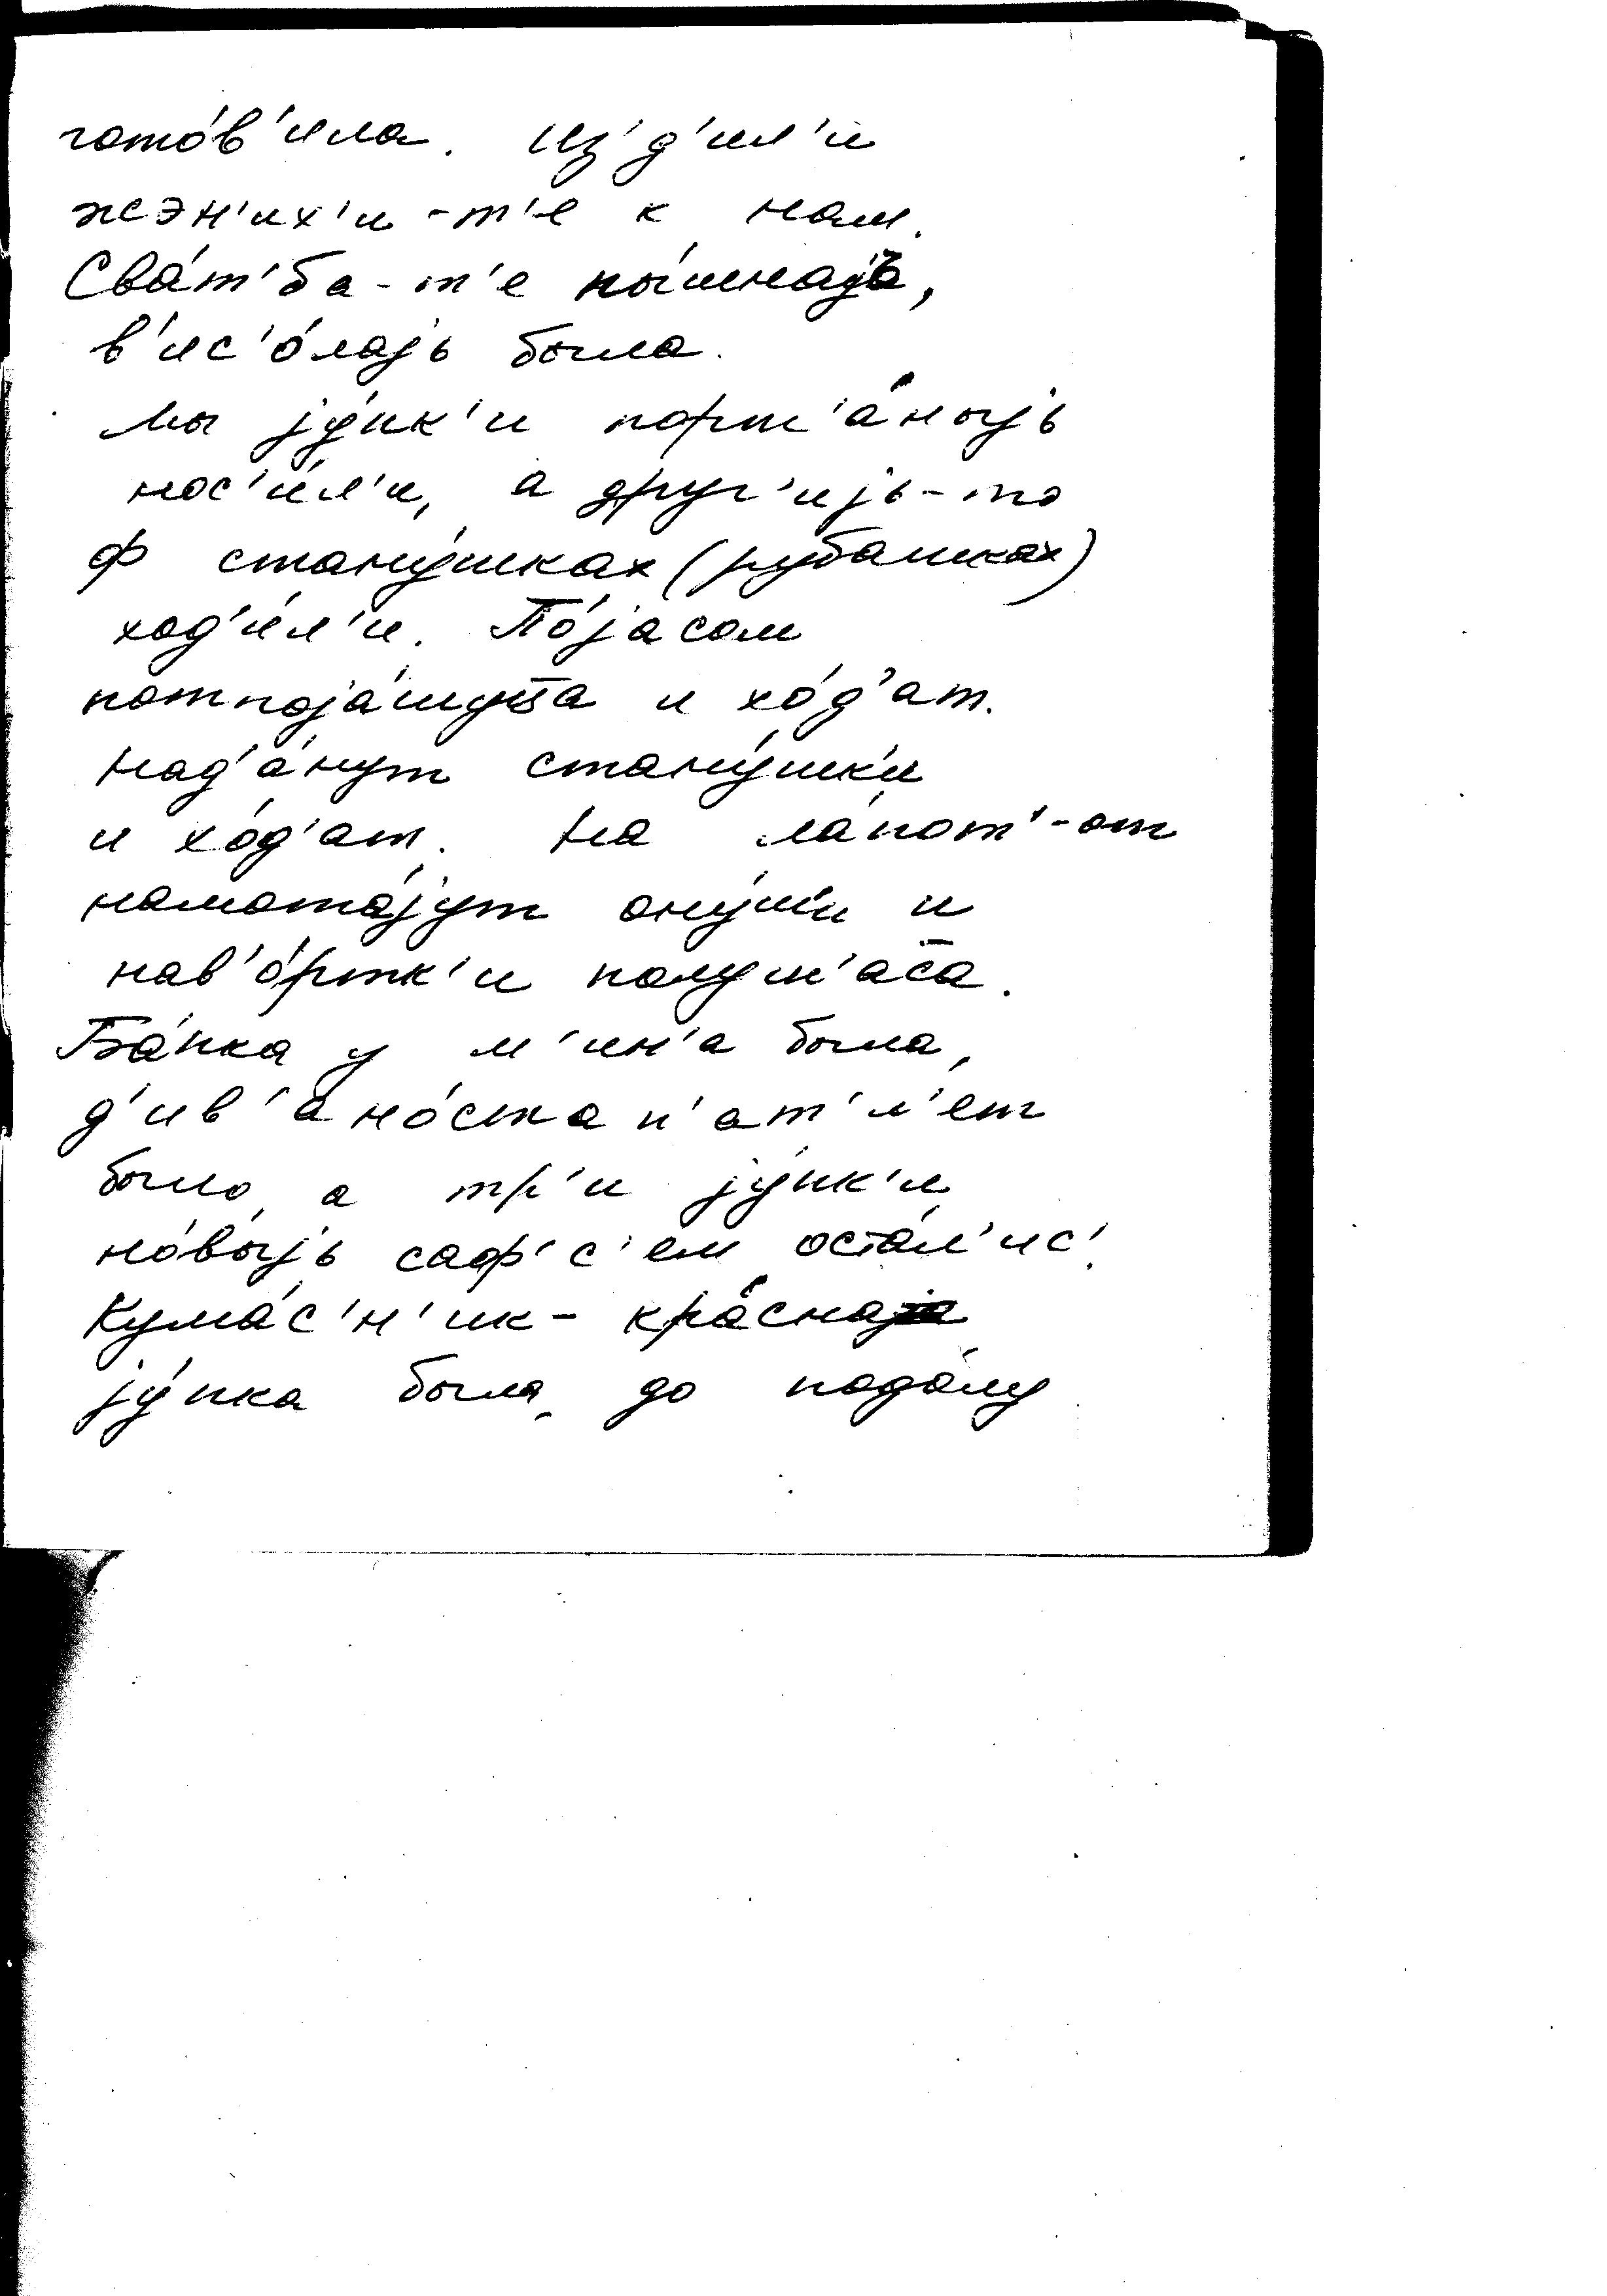 гото́в'ила. Из'д'ил'и
жэн'их'и-т'е к нам.
Сва́т'ба-т'е пы́шнаjъ,
в'ис'о́лаjь была.
Мы jу́пк'и порт'а́ныjь
нос'и́л'и, а друг'иjь-то
ф стану́шках (рубашках)
ход'и́л'и. По́jасом
потпоjа́шуца и хо́д'ат.
Над'а́нут стану́шк'и
и хо́д'ат. На ла́пот'-от
намота́jут ону́ш'и и
нав'о́ртк'и полуш'аса.
Ба́пка у м'ин'а была,
д'ив'ано́ста п'ат' л'ет
было, а тр'и jу́пк'и
но́выjь саф'с'ем оста́л'ис'.
Кума́с'н'ик - кра́снаjа
jу́пка была, до подо́лу